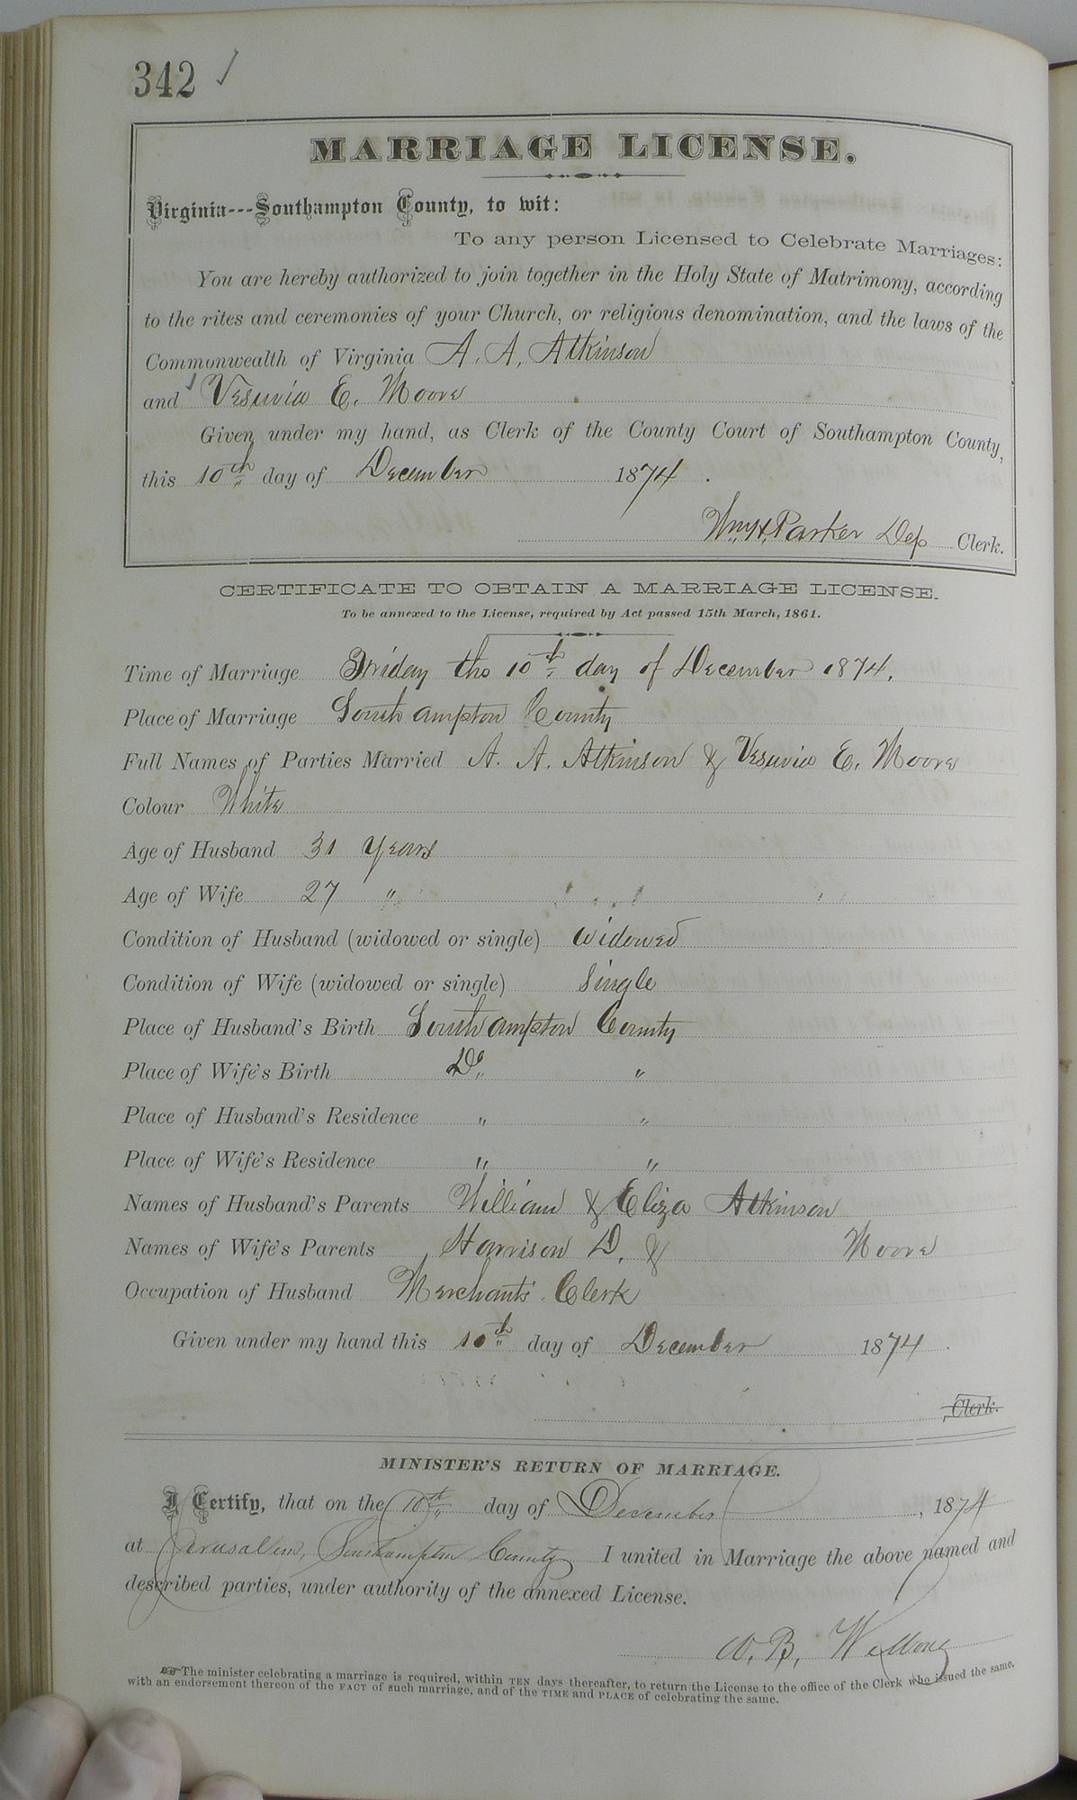 342 ✓
MARRIAGE LICENSE.
Virginia---Southampton County, to wit:
To any person Licensed to Celebrate Marriages:
You are hereby authorized to join together in the Holy State of Matrimony, according
to the rites and ceremonies of your Church, or religious denomination, and the laws of the
Commonwealth of Virginia A. A. Atkinson
and Vesuvia E. Moore
Given under my hand, as Clerk of the County Court of Southampton County,
this 10th day of December 1874.
Wm. H. Parker Dep Clerk.
CERTIFICATE TO OBTAIN A MARRIAGE LICENSE.
To be annexed to the License, required by Act passed 15th March, 1861.
Time of Marriage Friday the 10th day of December 1874.
Place of Marriage Southampton County
Full Names of Parties Married A. A. Atkinson & Vesuvia E. Moore
Colour White
Age of Husband 31 Years
Age of Wife 27 "
Condition of Husband (widowed or single) widowed
Condition of Wife (widowed or single) Single
Place of Husband's Birth Southampton County
Place of Wife's Birth Do. "
Place of Husband's Residence " "
Place of Wife's Residence " "
Names of Husband's Parents William & Eliza Atkinson
Names of Wife's Parents Harrison D. & Moore
Occupation of Husband Merchants Clerk
Given under my hand this 10th day of December 1874
, Clerk.
MINISTER'S RETURN OF MARRIAGE.
I Certify, that on the 10th day of December, 1874
at Jerusalem, Southampton County I united in Marriage the above named and
described parties, under authority of the annexed License.
W. B. Wellons
☞ The minister celebrating a marriage is required, within TEN days thereafter, to return the License to the office of the Clerk who issued the same,
with an endorsement thereon of the FACT of such marriage, and of the TIME and PLACE of celebrating the same.